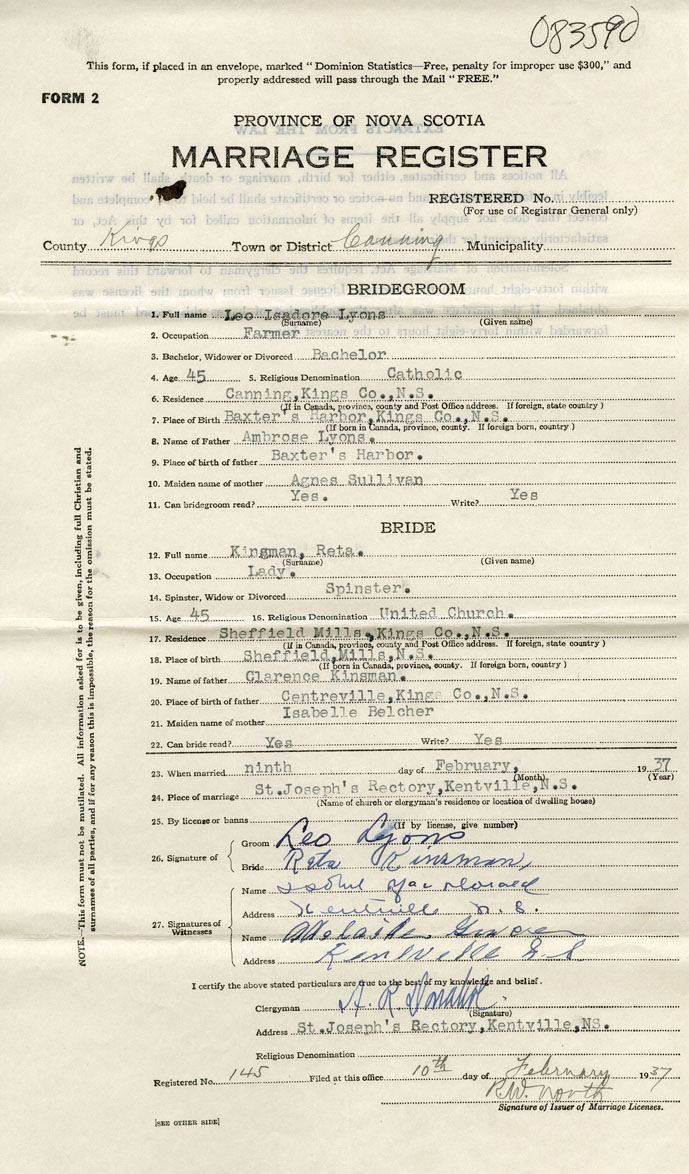 083590
This form, if placed in an envelope, marked "Dominion Statistics—Free, penalty for improper use $300," and
properly addressed will pass through the Mail "FREE."
FORM 2
PROVINCE OF NOVA SCOTIA
MARRIAGE REGISTER
REGISTERED No.
(For use of Registrar General only)
County Kings Town or District Canning Municipality
BRIDEGROOM
1. Full name Leo Isadore Lyons
(Surname) (Given name)
2. Occupation Farmer
3. Bachelor, Widower or Divorced Bachelor
4. Age 45 5. Religious Denomination Catholic
6. Residence Canning,Kings Co.,N.S.
(If in Canada, province, county and Post Office address. If foreign, state country)
7. Place of Birth Baxter's Harbor,Kings Co.,N.S.
(If born in Canada, province, county. If foreign born, country)
8. Name of Father Ambrose Lyons.
9. Place of birth of father Baxter's Harbor.
10. Maiden name of mother Agnes Sullivan
11. Can bridegroom read? Yes. Write? Yes
BRIDE
12. Full name Kingman, Reta.
(Surname) (Given name)
13. Occupation Lady.
14. Spinster, Widow or Divorced Spinster.
15. Age 45 16. Religious Denomination United Church.
17. Residence Sheffield Mills,Kings Co.,N.S.
(If in Canada, province, county and Post Office address. If foreign, state country)
18. Place of birth Sheffield,Mills,N.S.
(If born in Canada, province, county. If foreign born, country)
19. Name of father Clarence Kinsman.
20. Place of birth of father Centreville,Kings Co.,N.S.
21. Maiden name of mother Isabelle Belcher
22. Can bride read? Yes Write? Yes
23. When married ninth day of February, 1937
(Month) (Year)
24. Place of marriage St.Joseph's Rectory,Kentville,N.S.
(Name of church or clergyman's residence or location of dwelling house)
25. By license or banns (If by license, give number)
26. Signature of
Groom Leo Lyons
Bride Reta Kinsman,
27. Signatures of Witnesses
Name
Address Kentville N.S.
Name Adelaide
Address Kentville N S
I certify the above stated particulars are true to the best of my knowledge and belief.
Clergyman A. R. Donahoe.
(Signature)
Address St.Joseph's Rectory,Kentville,NS.
Religious Denomination
Registered No. 145 Filed at this office 10th day of February 1937
R.W. North
Signature of Issuer of Marriage Licenses.
[SEE OTHER SIDE]
NOTE.—This form must not be mutilated. All information asked for is to be given, including full Christian and
surnames of all parties, and if for any reason this is impossible, the reason for the omission must be stated.